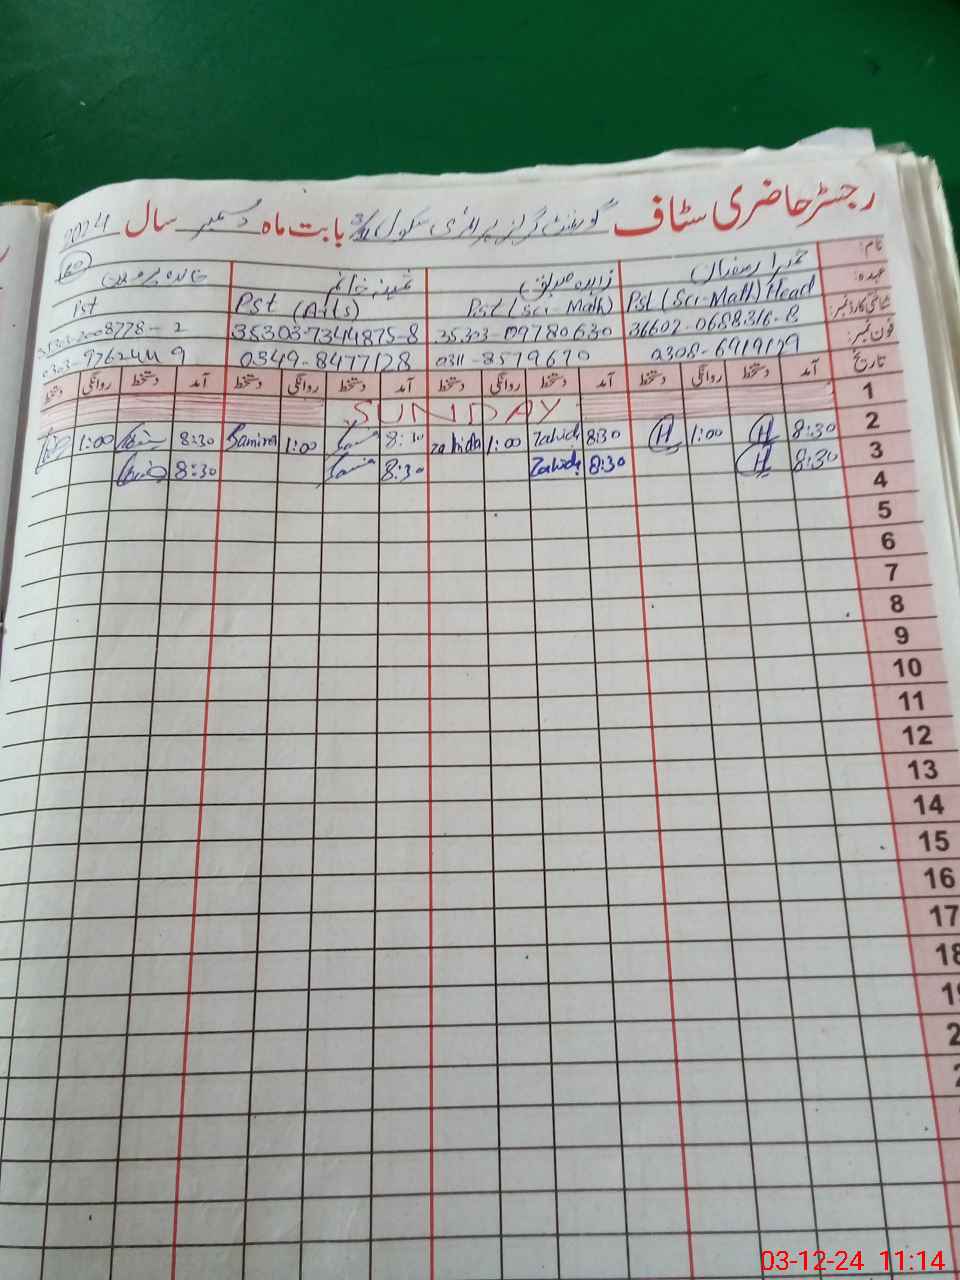 رجسٹر حاضری سٹاف گورنمنٹ گرلز پرائمری سکول بابت ماہ دسمبر سال 2024
نام: حمرا رمضان زاہدہ صدیق ثمینہ خانم
60
عہدہ: Pst (Sci-Math) Head Pst (Sci-Math) Pst (Arts) Pst
شناختی کارڈ نمبر: 36602-0688316-8 35303-7344875-8
فون نمبر: 0308-6919129 0311-8579670 0349-8477128
تاریخ آمد دستخط روانگی دستخط آمد دستخط روانگی دستخط آمد دستخط روانگی دستخط آمد دستخط روانگی دستخط
1 SUNDAY
2 8:30 H 1:00 H 8:30 Zahida 1:00 Zahida 8:30 1:00 Samina 8:30 1:00
3 8:30 H 8:30 Zahida 8:30 8:30
4
5
6
7
8
9
10
11
12
13
14
15
16
17
18
19
2
2
03-12-24 11:14